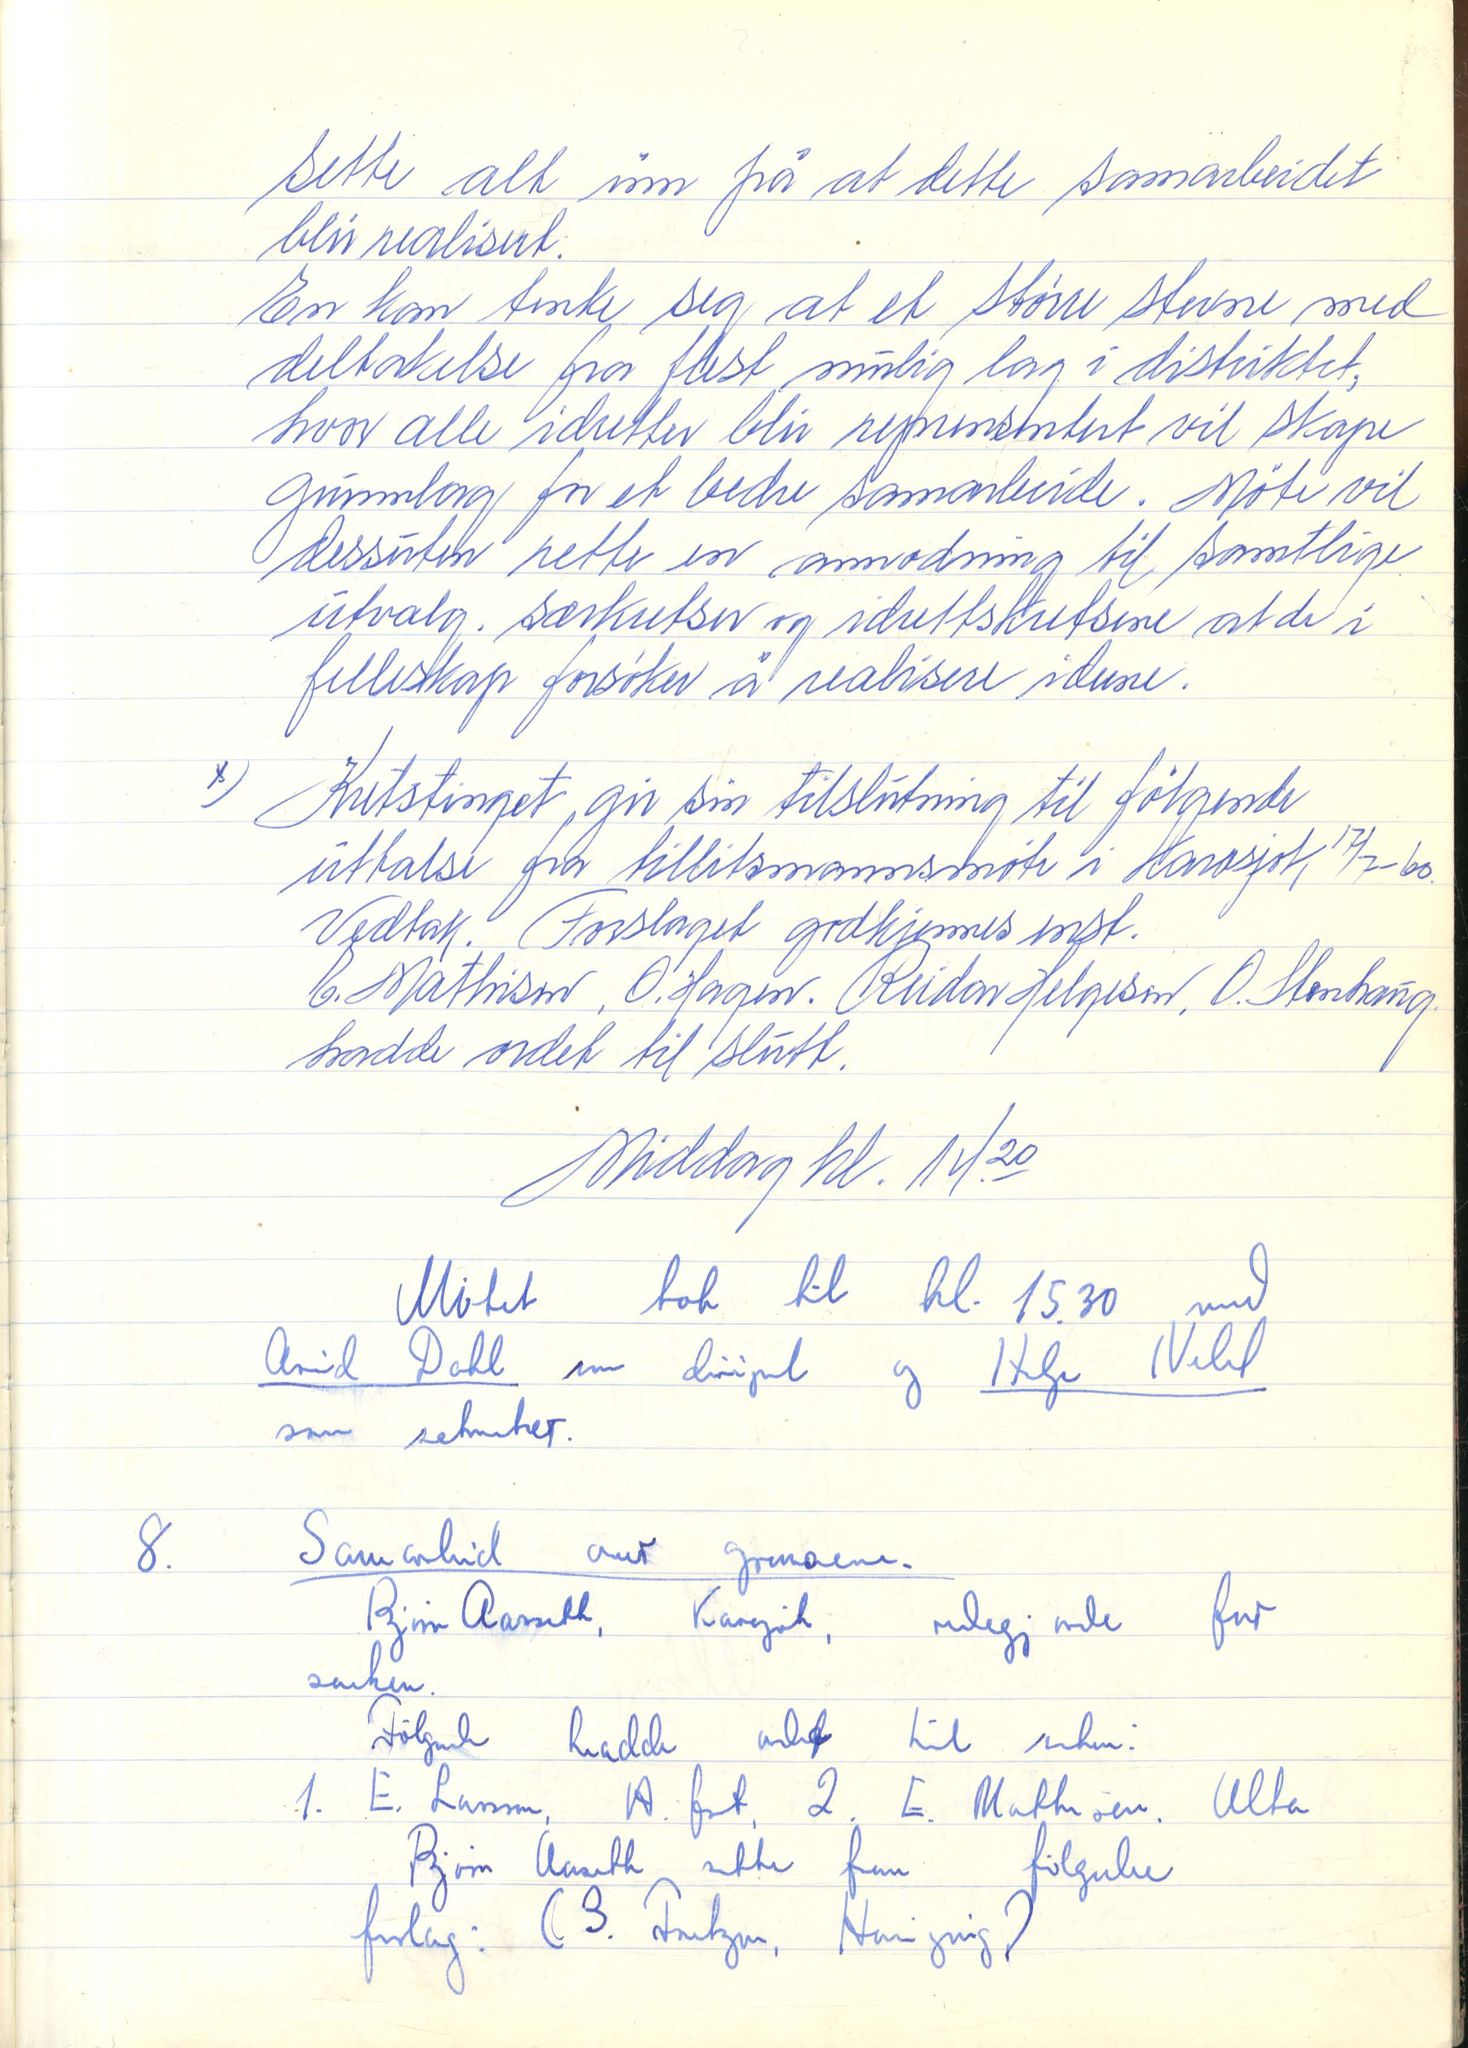 sette alt inn på at dette samarbeidet
blir realisert.
En kan tenke seg at et større stevne med
deltakelse fra flest mulig lag i distriktet,
hvor alle idretter blir representert vil skape
grunnlag for et bedre samarbeide. Møte vil
dessuten rette en anmodning til samtlige
utvalg. særkretser og idrettskretsene at de i
felleskap forsøker å realisere ideene.
x) Kretstinget gir sin tilslutning til følgende
uttalse fra tillitsmannsmøte i Karasjok,
Vedtak. Forslaget godkjennes enst.
E. Mathisen, O. Hagen. Reidar Helgesen, O. Stenhaug.
hadde ordet til slutt.
Middag kl. 14.20
Møtet tok til kl. 15.30 med
Arvid Dahl som dirigent og Helge
som sekretær.
8. Samarbeid over grensene.
Bjørn Aarseth, Karasjok, redegjorde for
saken.
Følgende hadde ordet til saken:
1. E. Larsen, H.fest, 2. E. Mathisen. Alta
Bjørn Aarseth sette fram følgende
forslag: (3.